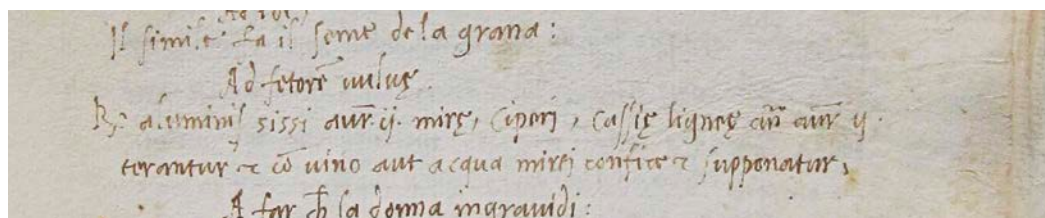 Il simile fa il seme de la grana:
Ad fetorē uuluę
℞ aluminis sissi aur̄ ij. mirę, ciperi, cassię ligneę an̄ aur̄ ij.
terantur et cō uino aut acqua mirti confice et supponatur,
A far ch la donna ingravidi: